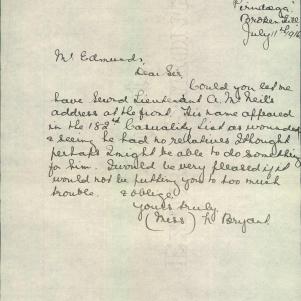 "Pirudæga"
Broken Hill
July 11th 1916
Mr Edmunds,
Dear Sir
Could you let me
have Second Lieutenant A. McNeill's
address at the front. His name appeared
in the 182nd Casuality List as wounded
& seeing he had no relatives I thought
perhaps I might be able to do something
for him. I would be very pleased if it
would not be putting you to too much
trouble. & oblige
Yours truly
(Miss) L. Bryant